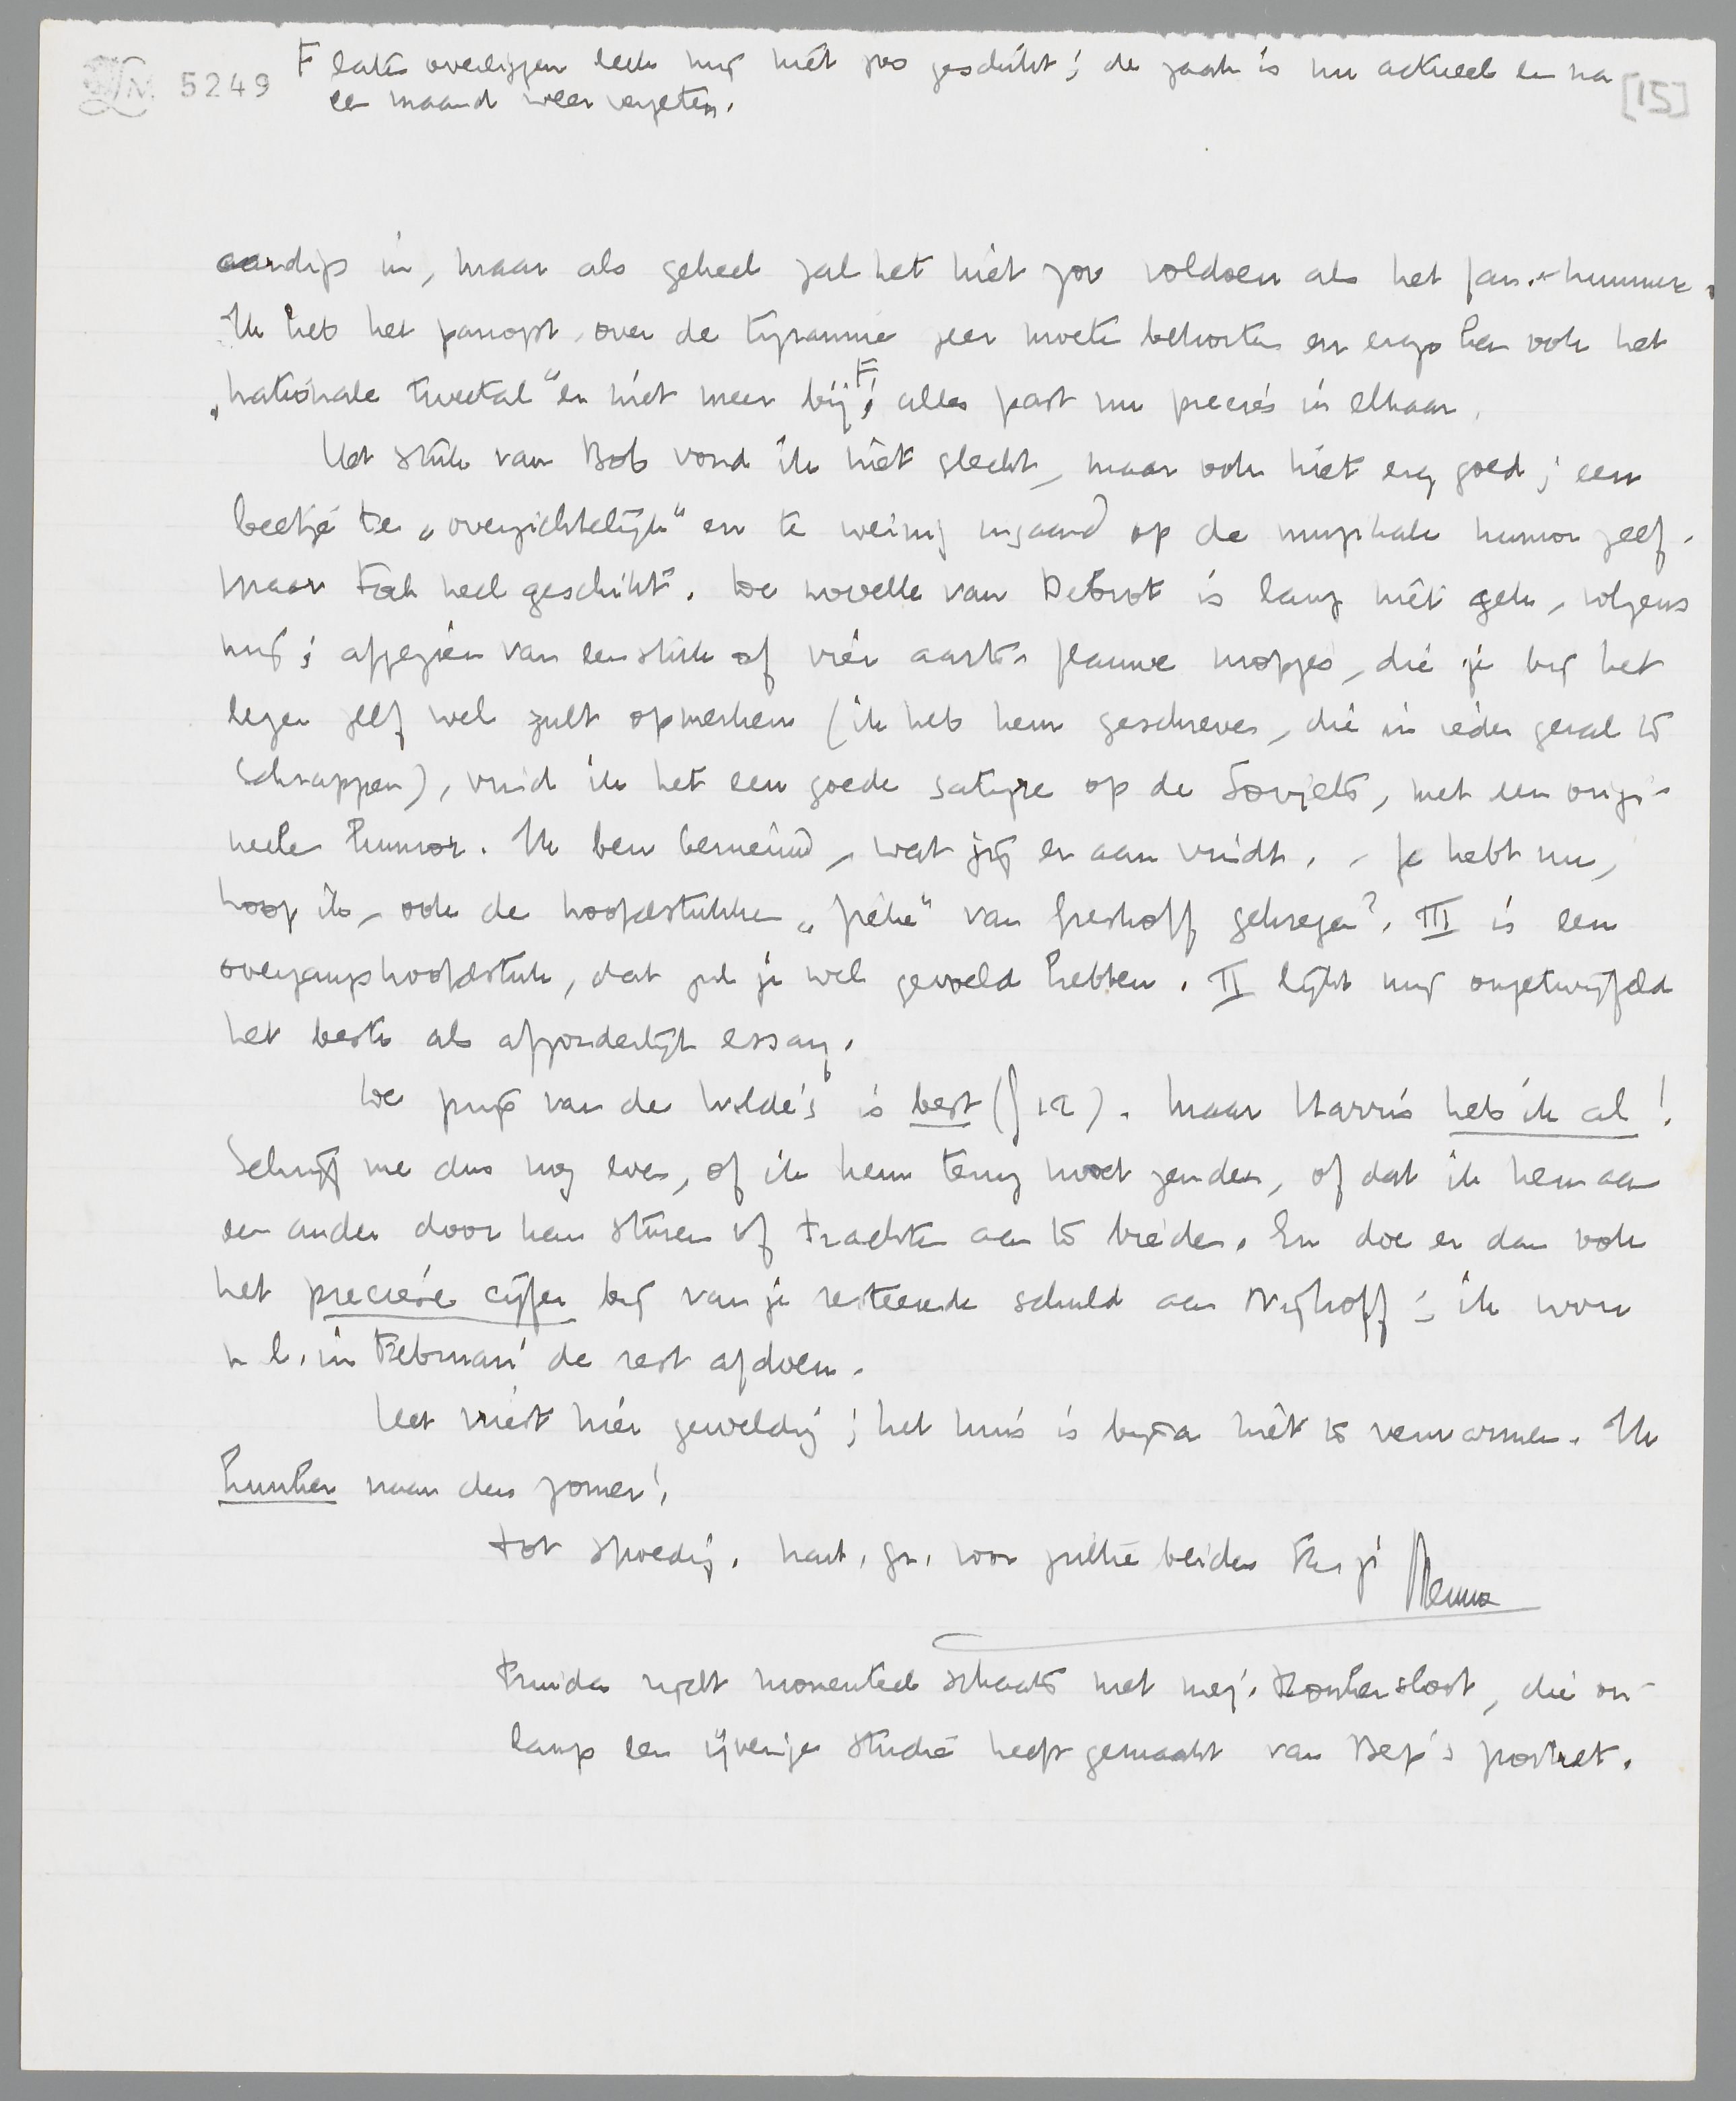 F laten overliggen leek mij niet zoo geschikt; de zaak is nu actueel en na
een maand weer vergeten.
5249
[15]
aardigs in, maar als geheel zal het niet zoo voldoen als het Jan.-nummer.
Ik heb het panopt. over de tyrannie zeer moeten bekorten en ergo kan ook het
„nationale tweetal" er niet meer bij F; alles past nu precies in elkaar.
Het stuk van Bob vond ik niet slecht, maar ook niet erg goed; een
beetje te „overzichtelijk" en te weinig ingaand op de muzikale humor zelf.
Maar toch heel geschikt. De novelle van Debrot is lang niet gek, volgens
mij; afgezien van een stuk of vier aarts-flauwe mopjes, die je bij het
lezen zelf wel zult opmerken (ik heb hem geschreven, die in ieder geval te
schrappen), vind ik het een goede satyre op de Sovjets, met een origi-
neele humor. Ik ben benieuwd, wat jij er aan vindt. - Je hebt nu,
hoop ik, ook de hoofdstukken „ " van Greshoff gekregen? III is een
overgangshoofdstuk, dat zul je wel gevoeld hebben. II lijkt mij ongetwijfeld
het beste als afzonderlijk essay.
De prijs van de Wilde's is best (ƒ 12). Maar Harris heb ik al!
Schrijf me dus nog even, of ik hem terug moet zenden, of dat ik hem aan
een ander door kan sturen of trachten aan te bieden. En doe er dan ook
het precieze cijfer bij van je resteerende schuld aan Nijhoff; ik wou
n.l. in Februari de rest afdoen.
Het vriest hier geweldig; het huis is bijna niet te verwarmen. Ik
hunker naar den zomer!
Tot spoedig. hart. gr. voor jullie beiden van je Menno
Truida rijdt momenteel schaats met mej. , die on-
langs een ijverige studie heeft gemaakt van Bep's portret.